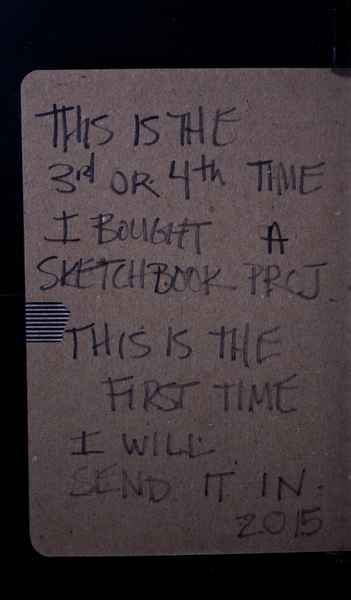 THIS IS THE
3rd OR 4th TIME
I BOUGHT A
SKETCHBOOK PROJ.
THIS IS THE
FIRST TIME
I WILL
SEND IT IN.
2015